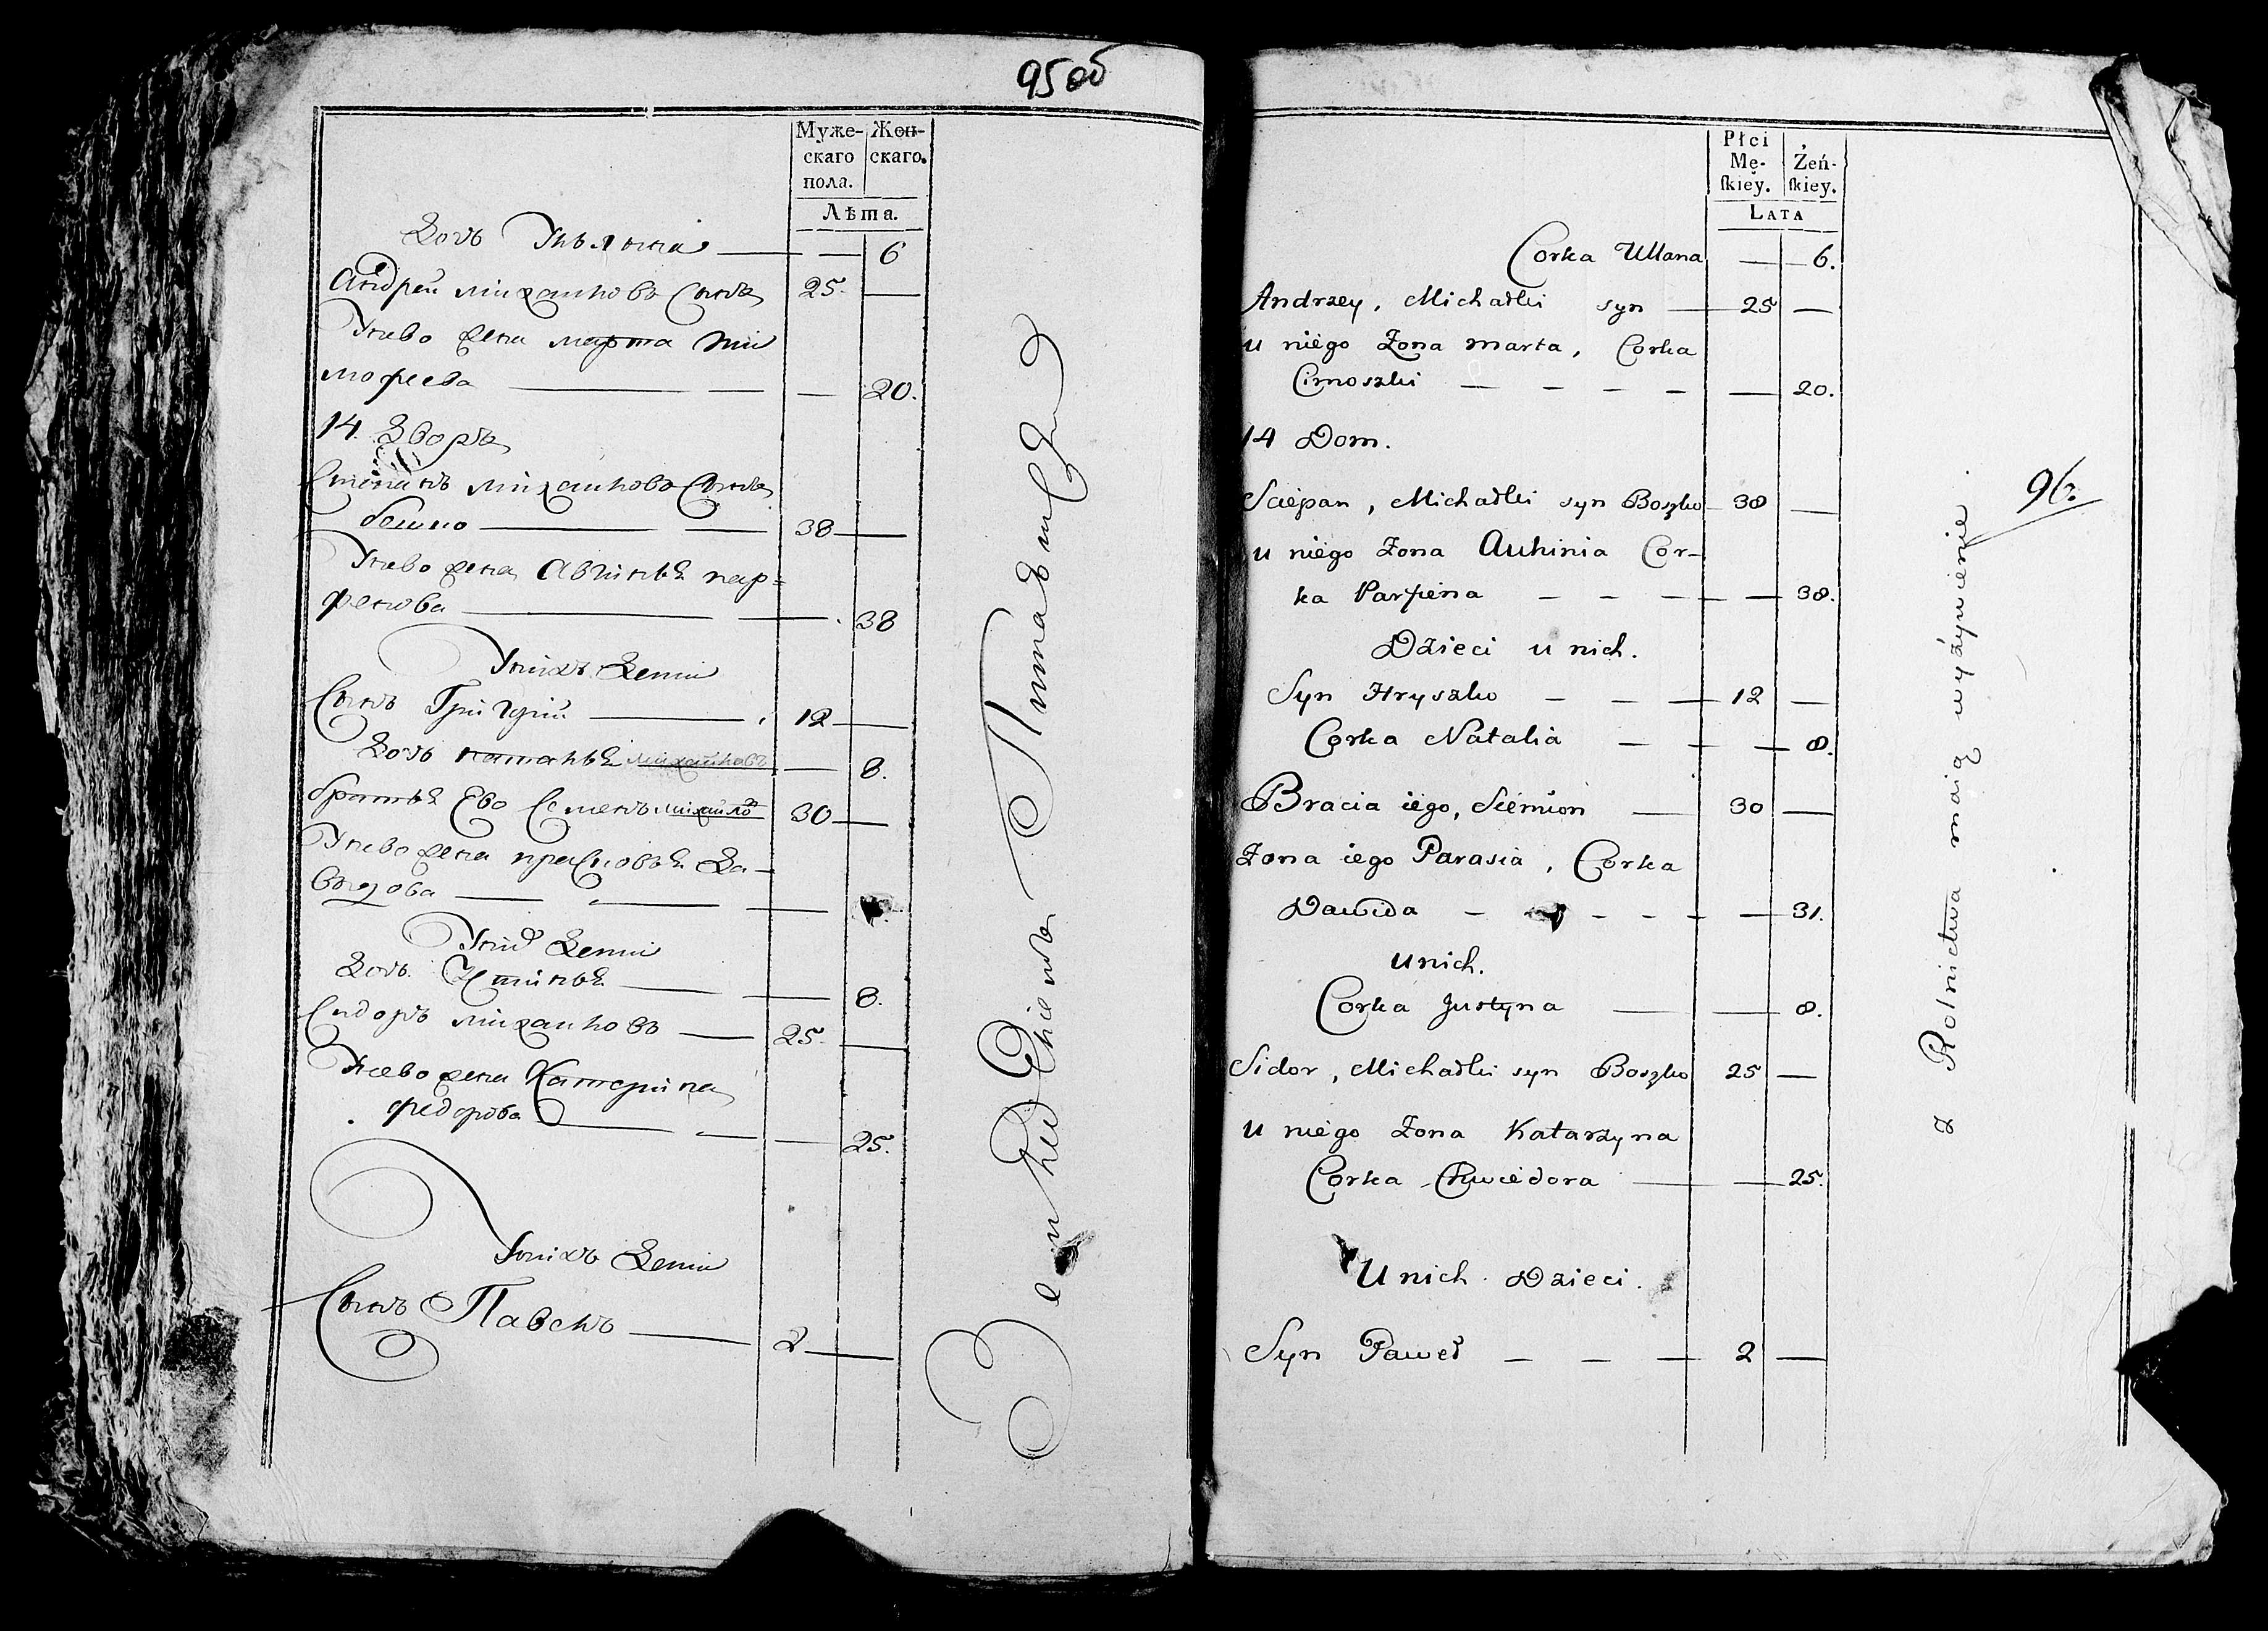 95 об
Муже- Жен-
скаго скаго.
пола.
Лѣта.
Дочь Ульяна — 6
Андрей михайловъ Сынъ 25. —
Унево жена марта Ти
мофеева — 20.
14. Дворъ
Степанъ михайловъ Сынъ
бошко 38 —
Унево жена Авгинья пар=
фенова — 38
Унихъ Дети
Сынъ Григорий 12 —
Дочь наталья михайловъ — 8.
братья Ево Семенъ михайло 30 —
Унево жена прасковья Да-
выдова —
Уних Дети
Дочь Устинья — 8.
Сидоръ михайловъ 25. —
Унево жена Катерина
федорова — 25.
Унихъ Дети
Сынъ Павелъ 2 —
96.
Płci
Mę- Żeń-
skiey. skiey.
LATA
Corka Ullana — 6.
Andrzey, Michałki syn — 25 —
u niego Żona marta, Corka
Cimoszki — — — — — 20.
14 Dom.
Sciepan, Michałki syn Boszko 38 —
u niego Żona Auhinia Cor-
ka Parfiena — — — — — 38.
Dzieci u nich.
Syn Hryszko — — — 12 —
Corka Natalia — — — 8.
Bracia iego, Siemion — 30 —
Żona iego Parasia, Corka
Dawida — — — — — 31.
unich.
Corka Justyna — — 8.
Sidor, Michałki syn Boszko 25 —
u niego Żona Katarzyna
Corka Chwiedora — — 25.
U nich Dzieci.
Syn Paweł — — — 2 —
z Rolnictwa maią wyżywienie